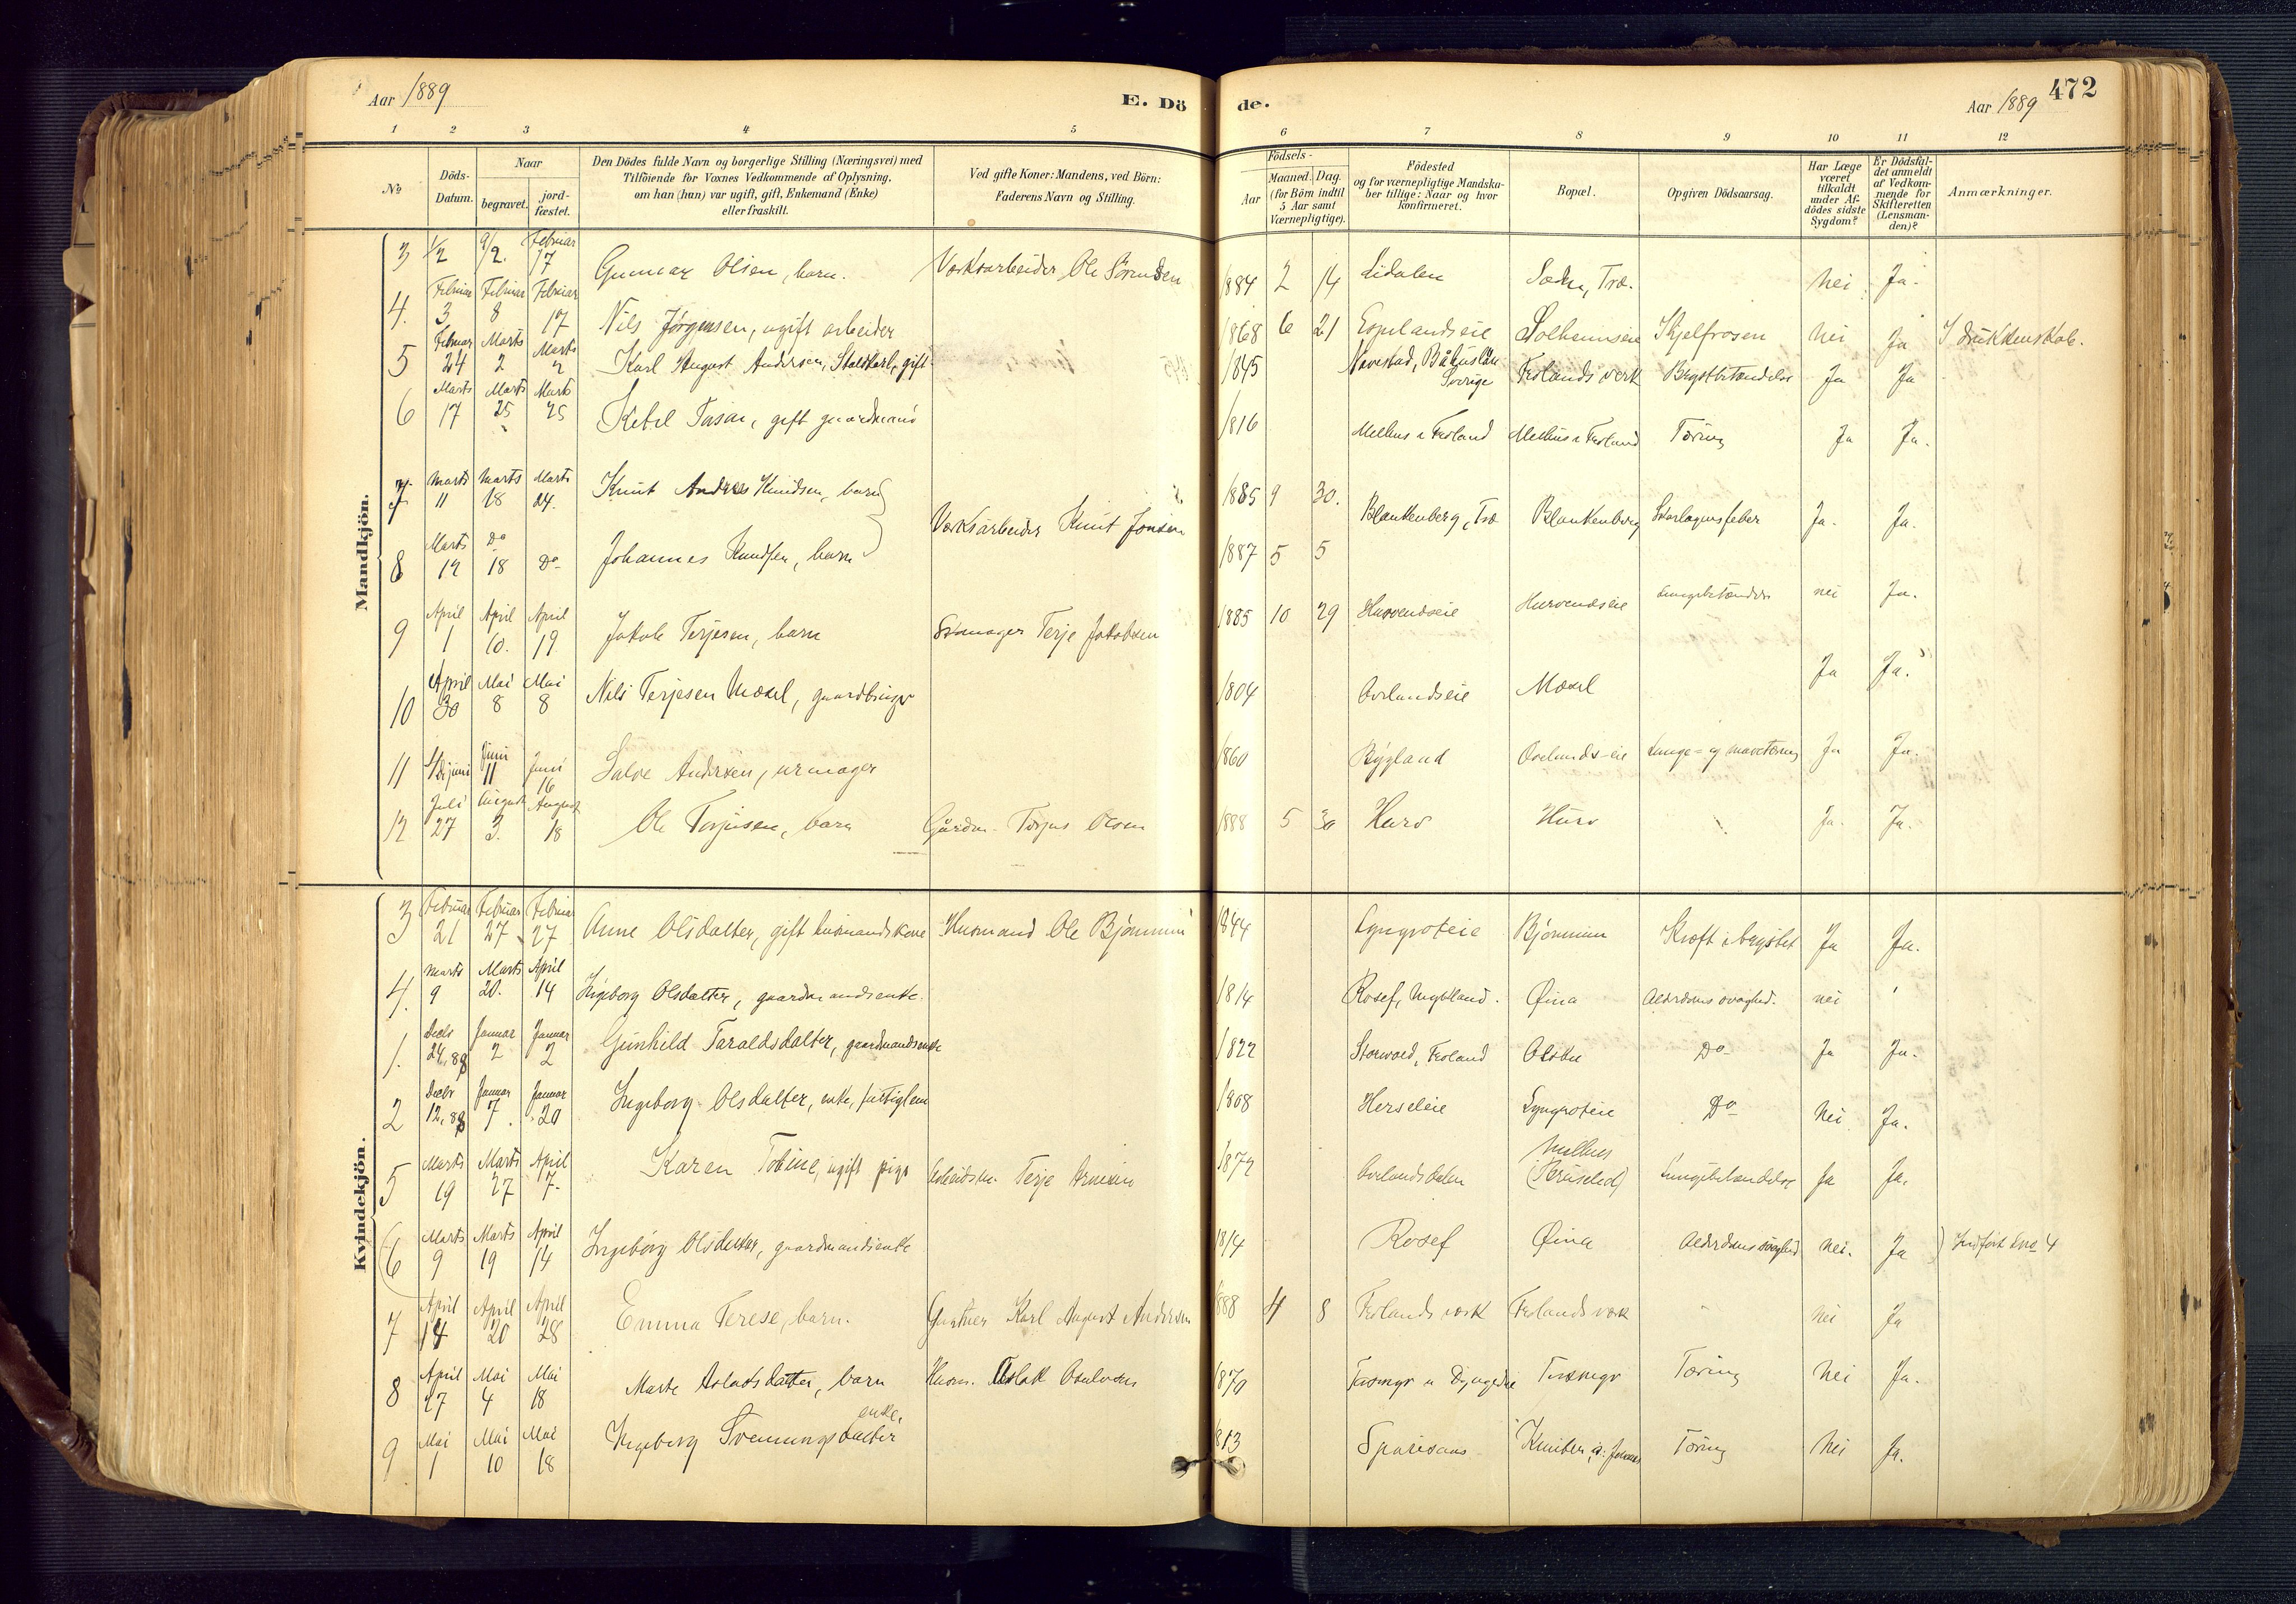 Aar 1889 E. Dö de. Aar 1889 472
1 2 3 4 5 6 7 8 9 10 11 12
No
Döds-Datum.
Naar
begravet.
jord-fæstet.
Den Dödes fulde Navn og borgerlige Stilling (Næringsvei) med
Tilföiende for Voxnes Vedkommende af Oplysning,
om han (hun) var ugift, gift, Enkemand (Enke)
eller fraskilt.
Ved gifte Koner: Mandens, ved Börn:
Faderens Navn og Stilling.
Födsels-
Aar
Maaned. Dag.
(for Börn indtil
5 Aar samt
Værnepligtige).
Födested
og for værnepligtige Mandska-
ber tillige: Naar og hvor
konfirmeret.
Bopæl.
Opgiven Dödsaarsag.
Har Læge
været
tilkaldt
under Af-
dödes sidste
Sygdom?
Er Dödsfal-
det anmeldt
af Vedkom-
mende for
Skifteretten
(Lensman-
den)?
Anmærkninger.
Mandkjön.
3 1/2 9/2. Februar 17 Gunnar Olsen, barn. Værksarbeider Ole Sörensen 1884 2 14 Lidalen Træ. Nei Ja.
4. Februar 3 Februar 8 Februar 17 Nils Jörgensen, ugift arbeider 1868 6 21 Espelandseie Solheimseie Ihjelfrosen Nei Ja I drukkenskab.
5 Februar 24 Marts 2 Marts 2 Karl August Andersen, Staldkarl, gift 1845 Navestad, Båhuslän Sverige Frolands værk Brystbetændelse Ja Ja
6 Marts 17 Marts 25 Marts 25 Ketil Tasan, gift gaardmand 1816 Melhus i Froland Melhus i Froland Tæring Ja Ja.
7 Marts 11 Marts 18 Marts 24. Knut Andreas Knudsen, barn 1885 9 30. Blankenberg, Træ Blankenberg Skarlagensfeber Ja. Ja.
Værksarbeider Knut Jonsen
8 Marts 12 Do 18 Do Johannes Knudsen, barn 1887 5 5
9 April 1 April 10. April 19 Jakob Terjesen, barn Skomager Terje Jakobsen 1885 10 29 Hurvendseie Hurvendseie Lungebetændelse nei Ja.
10 April 30 Mai 8 Mai 8 Nils Terjesen Moxel, gaardbruger 1804 Ovelandseie Moxel Ja Ja.
11 4 Juni Juni 11 Juni 16 Salve Andersen, urmager 1860 Bygland Ovelands-eie Lunge- og mavetæring Ja Ja.
12 Juli 27 August 3. August 18 Ole Torjusen, barn Gårdm. Torjus Olsen 1888 5 30 Hurv Hurv Ja. Ja.
Kvindekjön.
3 Februar 21 Februar 27 Februar 27 Anne Olsdatter, gift husmandskone Husmand Ole Björnmin 1844 Lyngroteie Björnmin Kræft i brystet Ja Ja.
4. Marts 9 Marts 20. April 14 Ingeborg Olsdatter, gaardmandsenke. 1814 Rosef, Mykland. Öina Alderdoms svaghed. nei
1. Decbr 24, 88 Januar 2 Januar 2 Gunhild Taraldsdatter, gaardmandsenke 1822 Froland Olsbu Do Ja Ja.
2 Decbr 12, 88 Januar 7. Januar 20 Ingeborg Olsdatter, enke, fattiglem 1808 Herseleie Lyngroteie Do Nei Ja.
5 Marts 19 Marts 27 April 7. Karen Tobine, ugift pige Arbeidsm. Terje Arnesen 1872 Ovelandsdalen Melhus Lungebetændelse Ja Ja.
6 Marts 9 Marts 19 April 14 Ingeborg Olsdatter, gaardmandsenke 1814 Rosef Öina Alderdoms svaghed Nei. Ja Indfört No 4
7 April 14 April 20 April 28 Emma Terese, barn. Gartner Karl August Andersen 1888 4 8 Frolands værk Frolands værk Nei Ja
8 April 27 Mai 4 Mai 18 Marte Aslaksdatter, barn Husm. Aslak 1870 Tæring Nei Ja.
9 Mai 1 Mai 10 Mai 18 Ingeborg Svenningsdatter enke, 1813 Sparesaas Tæring Nei Ja.